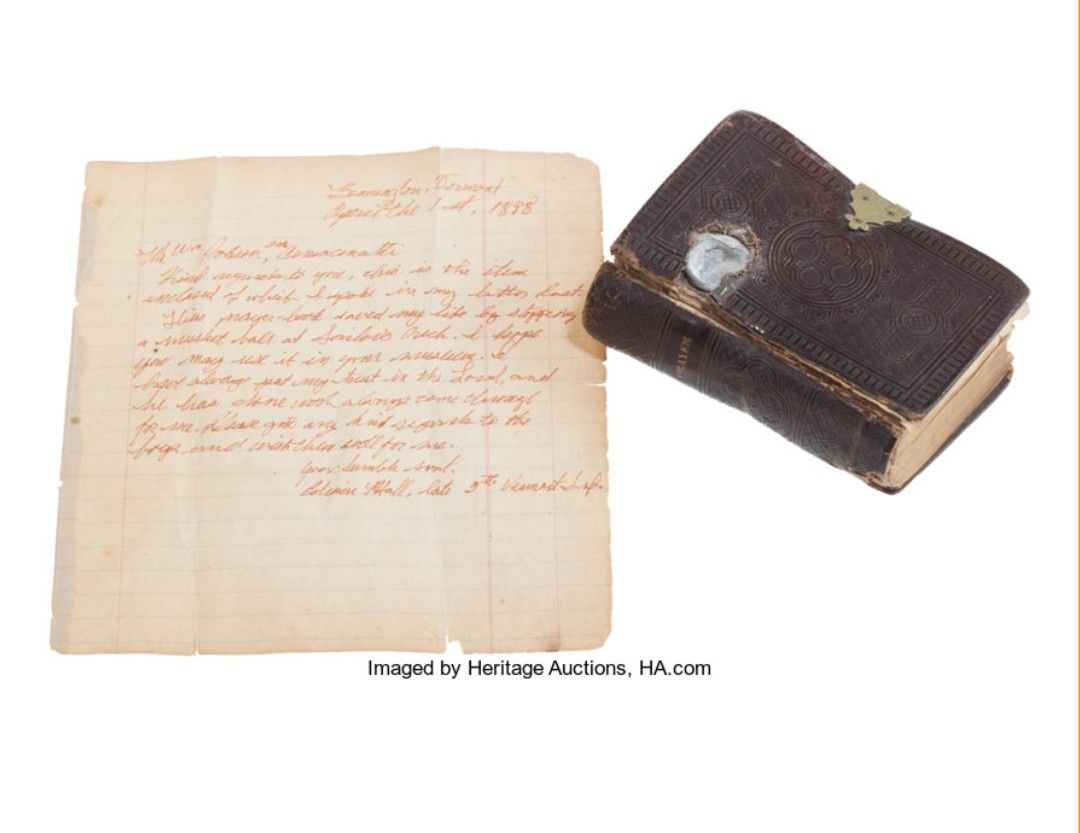 Vermont
April the 1st, 1888
Mr Wm
Kind regards to you, this is the item
inclosed of which I spoke in my letter last.
This prayer-book saved my life by stopping
a musket ball at Sailor's Creek. I hope
you may use it in your museum. I
have always put my trust in the Lord, and
he has always come through
for me. Please give my regards to the
boys and wish them well for me.
your humble svnt.
Hall, late 5th Vermont Inf.
Imaged by Heritage Auctions, HA.com